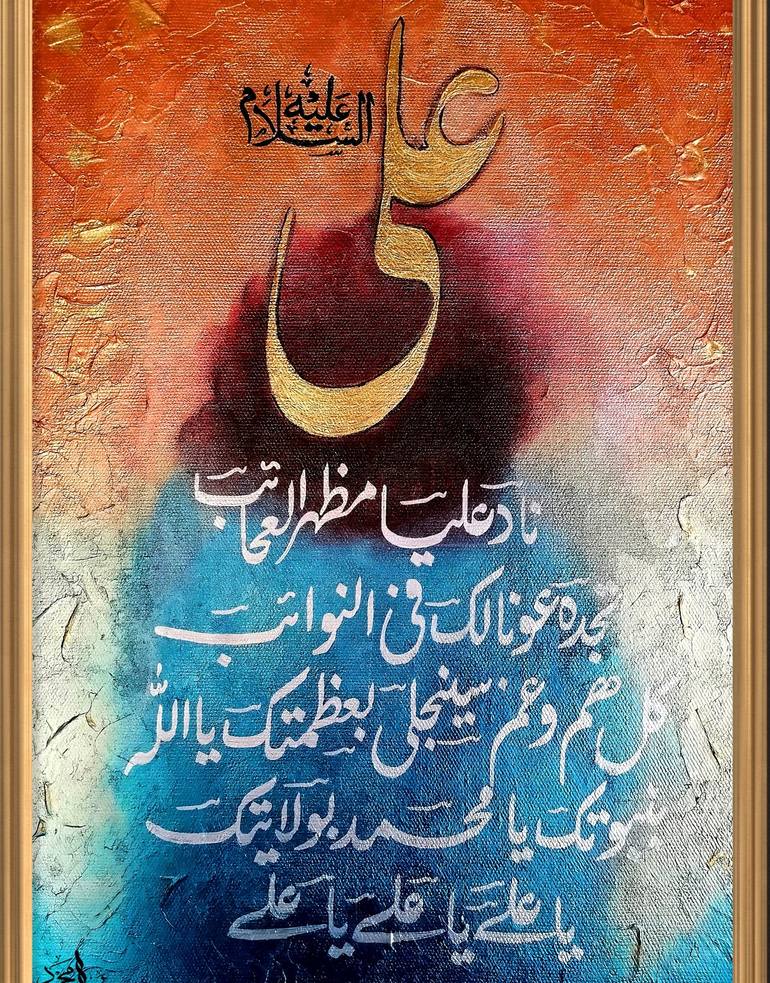 علی
علیه السلام
ناد علیا مظهر العجائب
تجده عونا لک فی النوائب
کل هم و غم سینجلی بعظمتک یا الله
بنبوتک یا محمد بولایتک
یا علے یا علے یا علے